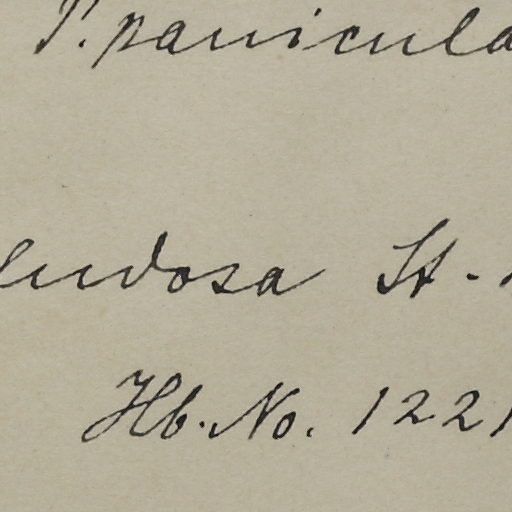 P. panicula
endosa St.
Hb. No. 1221